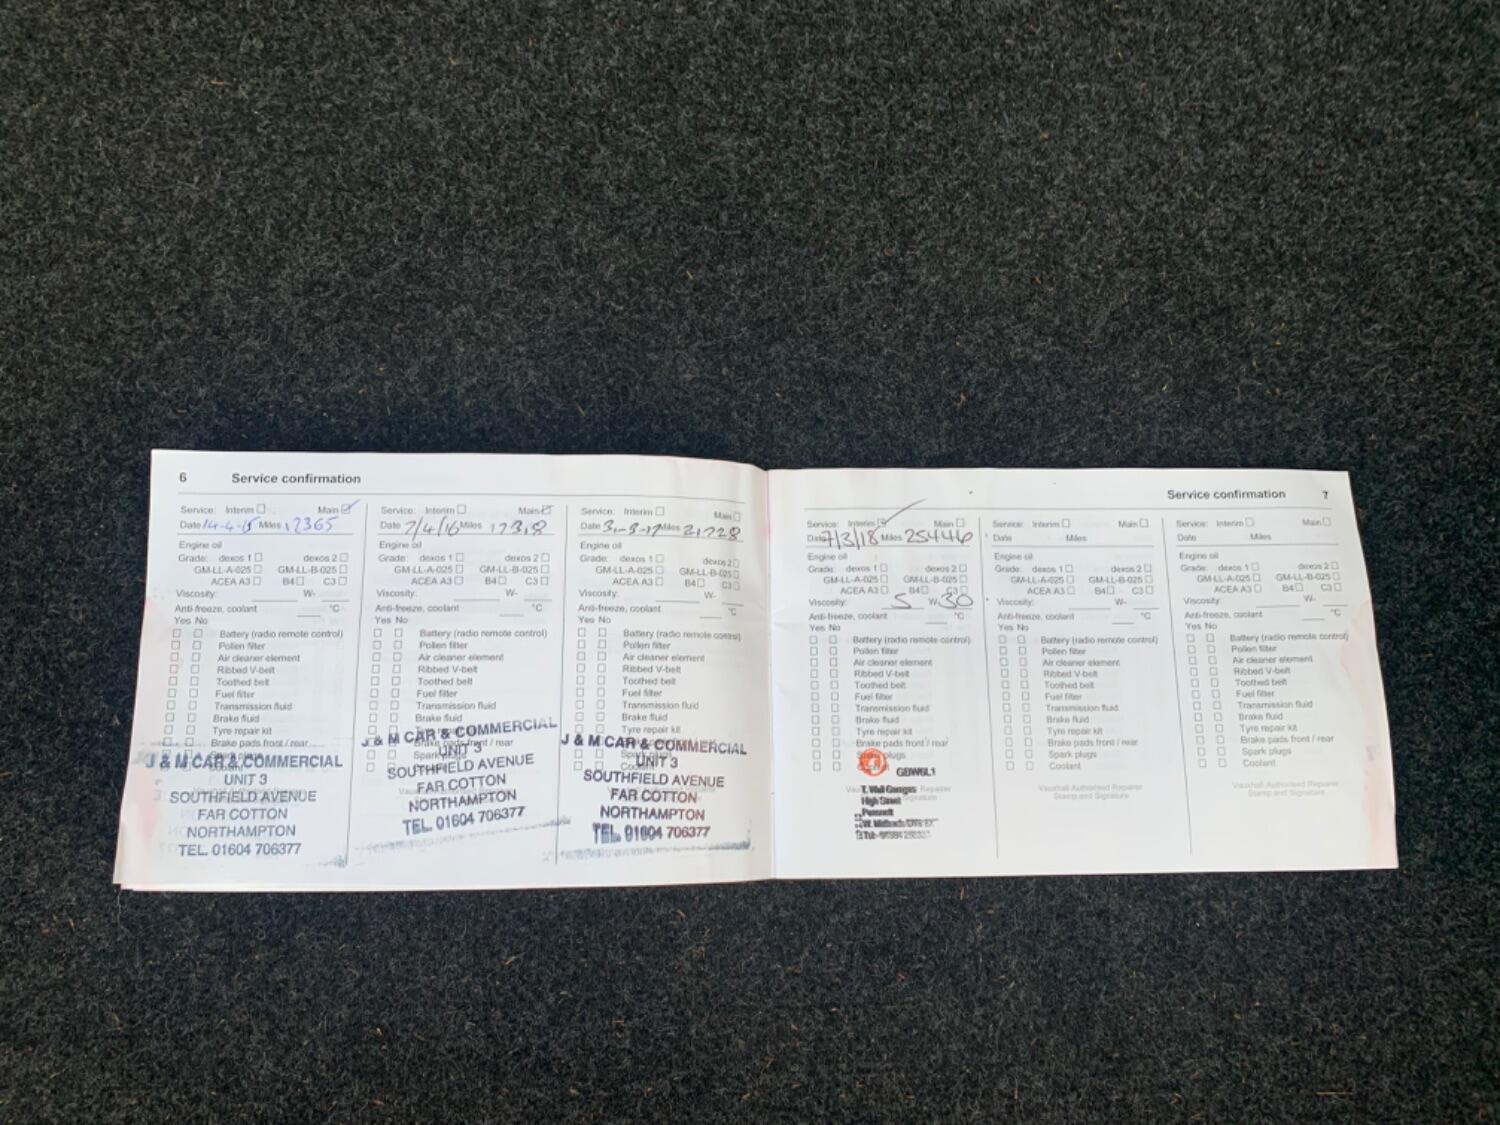 6 Service confirmation
Service: Interim ☐ Main ☑
Date 14-4-15 Miles 12365
Engine oil
Grade: dexos 1 ☐ dexos 2 ☐
GM-LL-A-025 ☐ GM-LL-B-025 ☐
ACEA A3 ☐ B4 ☐ C3 ☐
Viscosity: W-
Anti-freeze, coolant °C
Yes No
☐ ☐ Battery (radio remote control)
☐ ☐ Pollen filter
☐ ☐ Air cleaner element
☐ ☐ Ribbed V-belt
☐ ☐ Toothed belt
☐ ☐ Fuel filter
☐ ☐ Transmission fluid
☐ ☐ Brake fluid
☐ ☐ Tyre repair kit
☐ ☐ Brake pads front / rear
☐ ☐ Spark plugs
J & M CAR & COMMERCIAL
UNIT 3
SOUTHFIELD AVENUE
FAR COTTON
NORTHAMPTON
TEL. 01604 706377
Service: Interim ☐ Main ☑
Date 7/4/16 Miles
Engine oil
Grade: dexos 1 ☐ dexos 2 ☐
GM-LL-A-025 ☐ GM-LL-B-025 ☐
ACEA A3 ☐ B4 ☐ C3 ☐
Viscosity: W-
Anti-freeze, coolant °C
Yes No
☐ ☐ Battery (radio remote control)
☐ ☐ Pollen filter
☐ ☐ Air cleaner element
☐ ☐ Ribbed V-belt
☐ ☐ Toothed belt
☐ ☐ Fuel filter
☐ ☐ Transmission fluid
☐ ☐ Brake fluid
☐ ☐ Tyre repair kit
☐ ☐ Brake pads front / rear
☐ ☐ Spark plugs
J & M CAR & COMMERCIAL
UNIT 3
SOUTHFIELD AVENUE
FAR COTTON
NORTHAMPTON
TEL. 01604 706377
Service: Interim ☐ Main ☐
Date 3-3-17 Miles 21728
Engine oil
Grade: dexos 1 ☐ dexos 2 ☐
GM-LL-A-025 ☐ GM-LL-B-025 ☐
ACEA A3 ☐ B4 ☐ C3 ☐
Viscosity: W-
Anti-freeze, coolant °C
Yes No
☐ ☐ Battery (radio remote control)
☐ ☐ Pollen filter
☐ ☐ Air cleaner element
☐ ☐ Ribbed V-belt
☐ ☐ Toothed belt
☐ ☐ Fuel filter
☐ ☐ Transmission fluid
☐ ☐ Brake fluid
☐ ☐ Tyre repair kit
☐ ☐ Brake pads front / rear
☐ ☐ Spark plugs
J & M CAR & COMMERCIAL
UNIT 3
SOUTHFIELD AVENUE
FAR COTTON
NORTHAMPTON
TEL. 01604 706377
Service confirmation 7
Service: Interim ☑ Main ☐
Date 7/3/18 Miles 25446
Engine oil
Grade: dexos 1 ☐ dexos 2 ☐
GM-LL-A-025 ☐ GM-LL-B-025 ☐
ACEA A3 ☐ B4 ☐ C3 ☐
Viscosity: 5 W-30
Anti-freeze, coolant °C
Yes No
☐ ☐ Battery (radio remote control)
☐ ☐ Pollen filter
☐ ☐ Air cleaner element
☐ ☐ Ribbed V-belt
☐ ☐ Toothed belt
☐ ☐ Fuel filter
☐ ☐ Transmission fluid
☐ ☐ Brake fluid
☐ ☐ Tyre repair kit
☐ ☐ Brake pads front / rear
☐ ☐ Spark plugs
☐ ☐ Coolant
T. Wall Garages
High Street
Pensnett
Service: Interim ☐ Main ☐
Date Miles
Engine oil
Grade: dexos 1 ☐ dexos 2 ☐
GM-LL-A-025 ☐ GM-LL-B-025 ☐
ACEA A3 ☐ B4 ☐ C3 ☐
Viscosity: W-
Anti-freeze, coolant °C
Yes No
☐ ☐ Battery (radio remote control)
☐ ☐ Pollen filter
☐ ☐ Air cleaner element
☐ ☐ Ribbed V-belt
☐ ☐ Toothed belt
☐ ☐ Fuel filter
☐ ☐ Transmission fluid
☐ ☐ Brake fluid
☐ ☐ Tyre repair kit
☐ ☐ Brake pads front / rear
☐ ☐ Spark plugs
☐ ☐ Coolant
Vauxhall Authorised Repairer
Stamp and Signature
Service: Interim ☐ Main ☐
Date Miles
Engine oil
Grade: dexos 1 ☐ dexos 2 ☐
GM-LL-A-025 ☐ GM-LL-B-025 ☐
ACEA A3 ☐ B4 ☐ C3 ☐
Viscosity: W-
Anti-freeze, coolant °C
Yes No
☐ ☐ Battery (radio remote control)
☐ ☐ Pollen filter
☐ ☐ Air cleaner element
☐ ☐ Ribbed V-belt
☐ ☐ Toothed belt
☐ ☐ Fuel filter
☐ ☐ Transmission fluid
☐ ☐ Brake fluid
☐ ☐ Tyre repair kit
☐ ☐ Brake pads front / rear
☐ ☐ Spark plugs
☐ ☐ Coolant
Vauxhall Authorised Repairer
Stamp and Signature